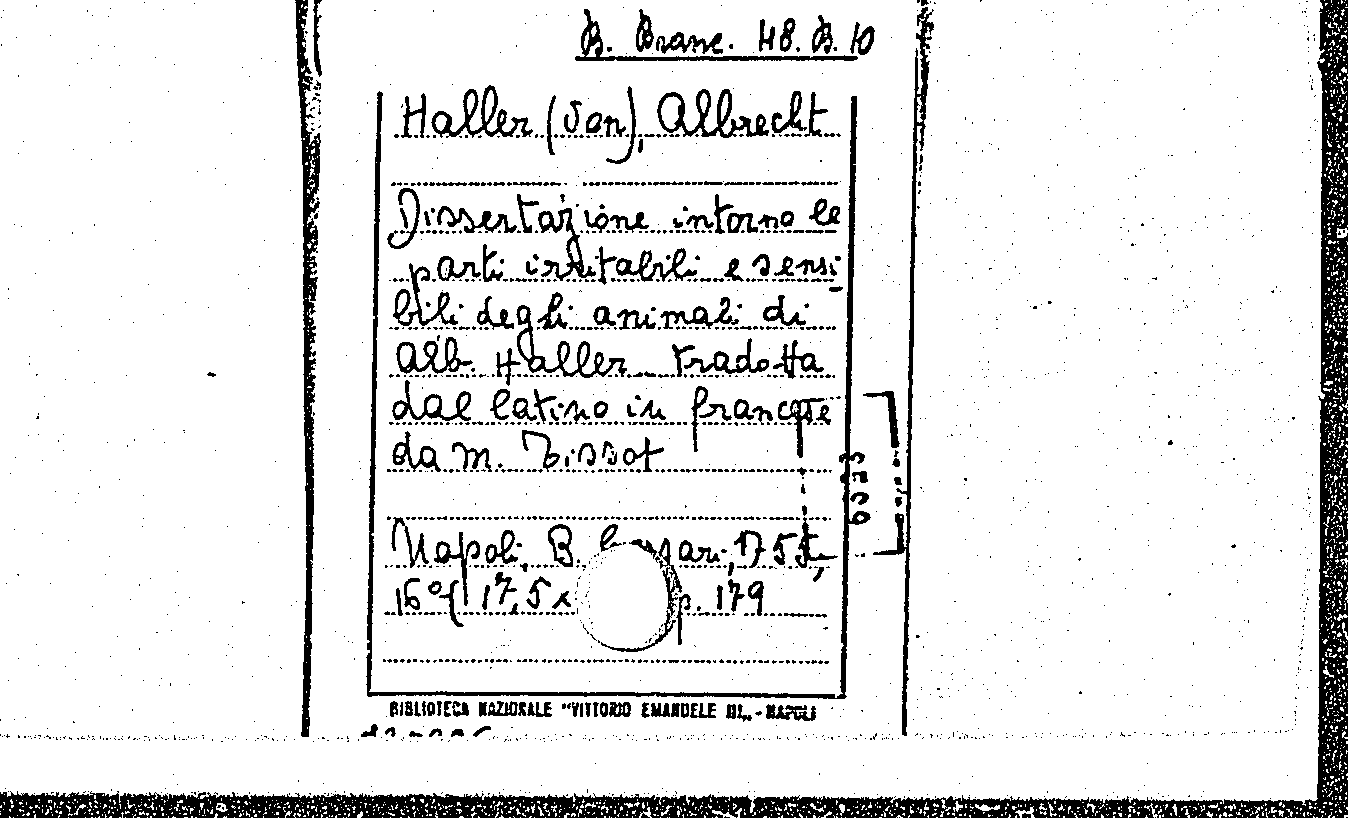 B. Branc. 48. B. 10
Haller (von), Albrecht
Dissertazione intorno le
parti irritabili e sensi
bili degli animali di
Alb. Haller tradotta
dal latino in francese
da M. Tissot
Napoli, B. 1755,
16° ( 17,5 x p. 179
BIBLIOTECA NAZIONALE "VITTORIO EMANUELE III„ - NAPOLI